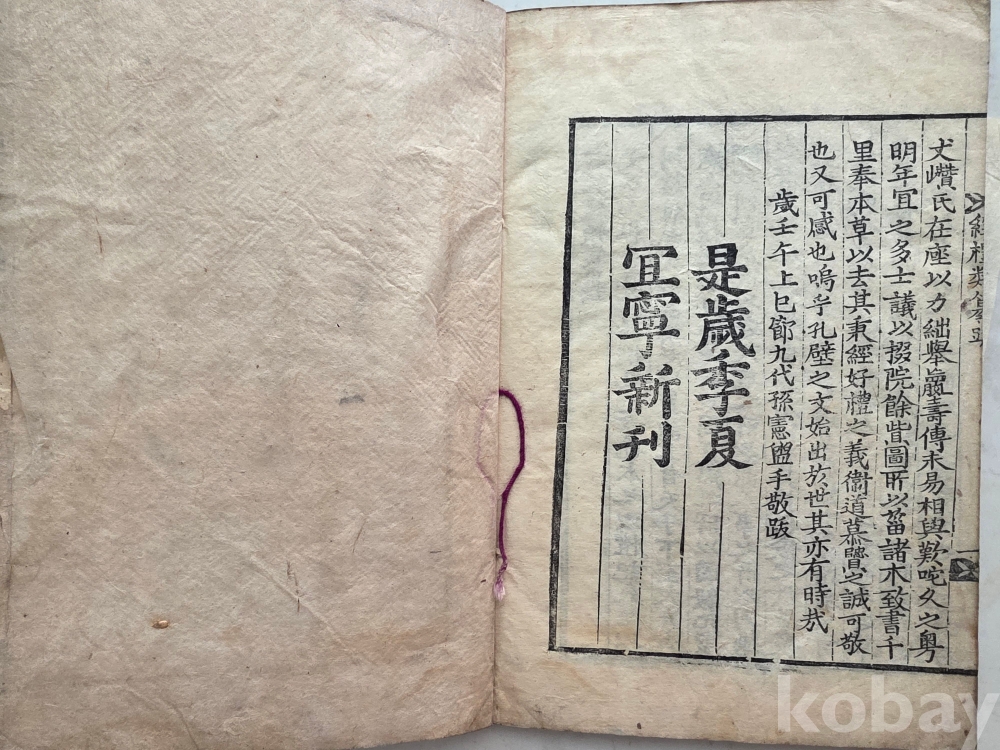 經禮類纂
丈巑氏在座以力絀擧嬴壽傳未易相與歎咤久之粤
明年宜之多士議以掇院餘貲圖所以菑諸木致書千
里奉本草以去其秉經好禮之義衛道慕賢之誠可敬
也又可感也嗚乎孔壁之文始出於世其亦有時哉
歲壬午上巳節九代孫憲盥手敬跋
是歲季夏
宜寧新刊
kobay